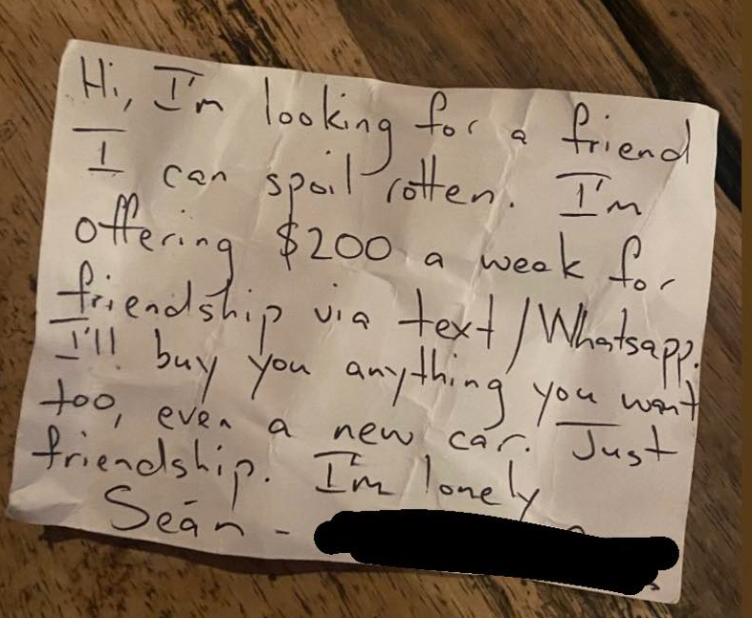 Hi, I'm looking for a friend
I can spoil rotten. I'm
offering $200 a week for
friendship via text/Whatsapp.
I'll buy you anything you want
too, even a new car. Just
friendship. I'm lonely
Seán -